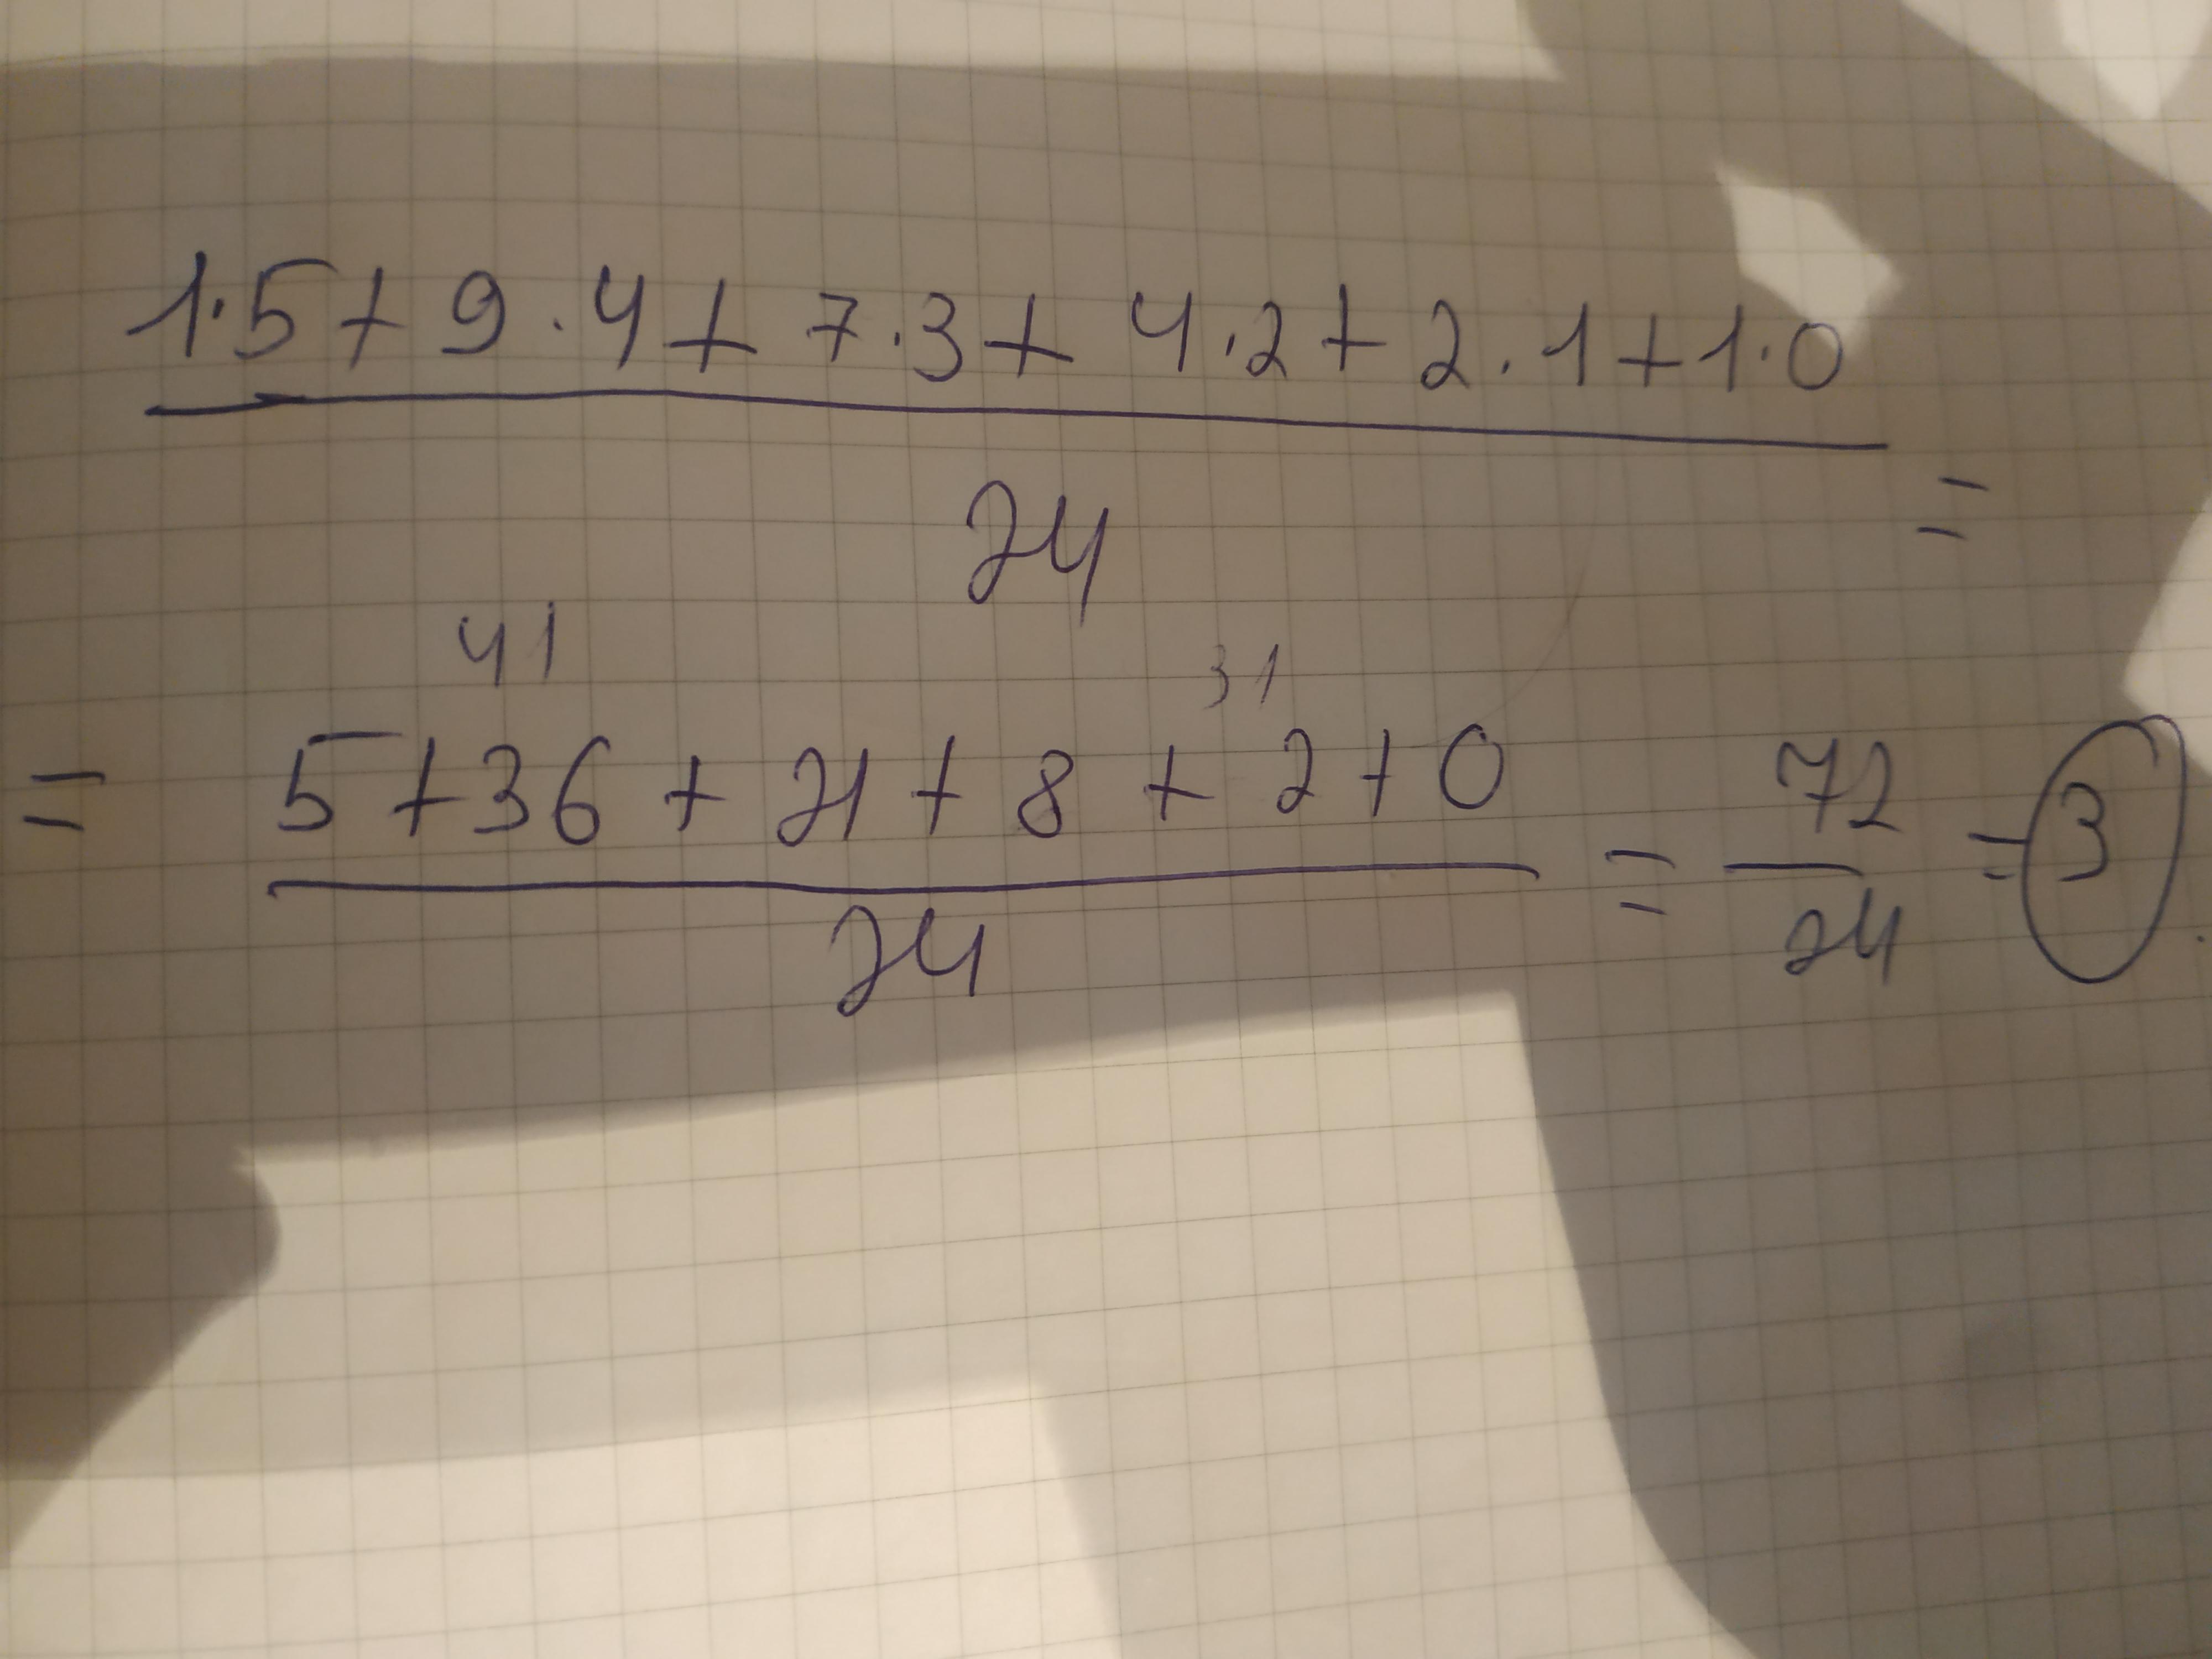 1·5+9·4+7·3+4·2+2·1+1·0
24 =
41 31
= 5+36+21+8+2+0 = 72 = 3
24 24